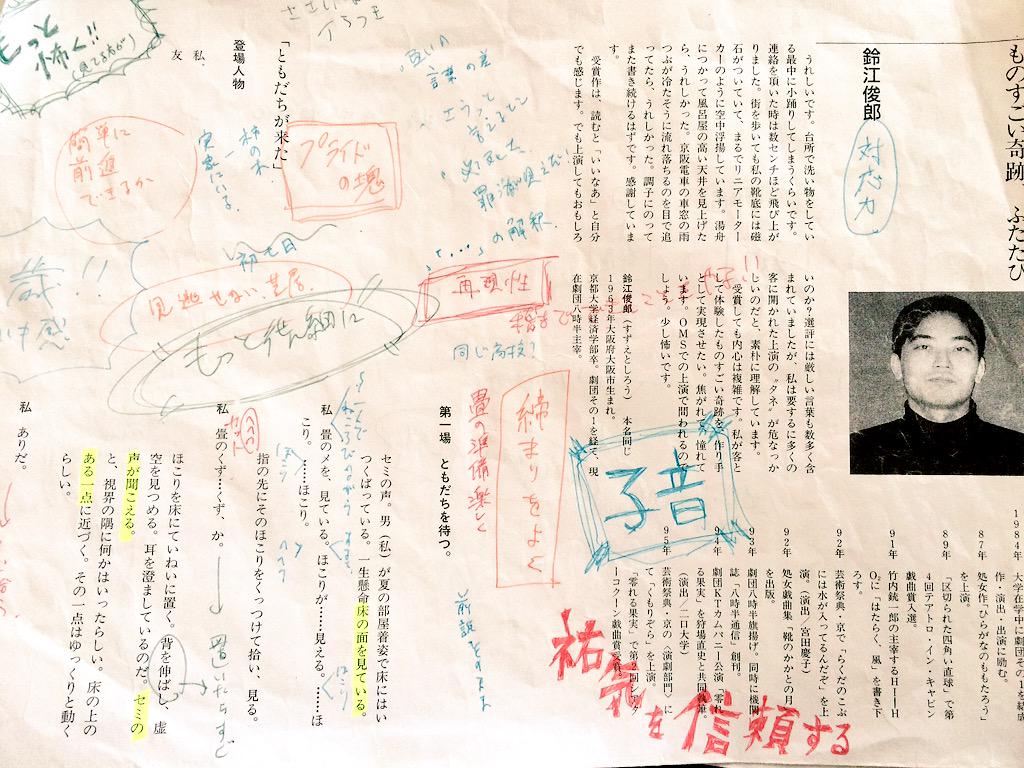 ものすごい奇跡、ふたたび
鈴江俊郎
対応力
うれしいです。台所で洗い物をしてい
る最中に小踊りしてしまうくらいです。
連絡を頂いた時は数センチほど飛び上が
りました。街を歩いても私の靴底には磁
石がついていて、まるでリニアモーター
カーのように空中浮揚しています。湯舟
につかって風呂屋の高い天井を見上げた
ら、うれしかった。京阪電車の車窓の雨
つぶが冷たそうに流れ落ちるのを目で追
ってたら、うれしかった。調子にのって
また書き続けるはずです。感謝していま
す。
受賞作は、読むと「いいなあ」と自分
でも感じます。でも上演してもおもしろ
いのか?選評には厳しい言葉も数多く含
まれていましたが、私は要するに多くの
客に開かれた上演の“タネ”が危なっか
しいのだと、素朴に理解しています。
受賞しても内心は複雑です。私が客と
して体験したものすごい奇跡を、作り手
として実現させたい。焦がれて、憧れて
います。OMSでの上演で問われるので
しょう。少し怖いです。
鈴江俊郎(すずえとしろう) 本名同じ
1963年大阪府大阪市生まれ。
京都大学経済学部卒。劇団その1を経て、現
在劇団八時半主宰。
1984年 大学在学中に劇団その1を結成
作・演出・出演に励む。
87年 処女作「ひらがなのももたろう」
を上演。
89年 「区切られた四角い直球」で第
4回テアトロ・イン・キャビン
戯曲賞入選。
91年 竹内銃一郎の主宰するHIIH
O₂に「はたらく、風」を書き下
ろす。
92年 芸術祭典・京で「らくだのこぶ
には水が入ってるんだぞ」を上
演。(演出/宮田慶子)
92年 処女戯曲集「靴のかかとの月」
を出版。
93年 劇団八時半旗揚げ。同時に機関
誌「八時半通信」創刊。
94年 劇団KTカムパニー公演「零れ
る果実」を狩場直史と共同執筆。
(演出/二口大学)
95年 芸術祭典・京の〈演劇部門〉に
て「くもりぞら」を上演。
「零れる果実」で第2回シアタ
ーコクーン戯曲賞受賞。
子音
祐気を信頼する
再現性
同じ高校?
締まりをよく
畳の準備楽しく
「……」の解釈
プライドの塊
柿の木
実家にいる
初七日
見逃せない芝居
もっと繊細に
簡単に
前進
できるか
もっと
怖く!!
「ともだちが来た」
登場人物
私
友
第一場 ともだちを待つ。
セミの声。男(私)が夏の部屋着姿で床にはい
つくばっている。一生懸命床の面を見ている。
私 畳のメを、見ている。ほこりが……見える。……ほ
こり。……ほこり。
指の先にそのほこりをくっつけて拾い、見る。
私 畳のくず……くず、か。
ほこりを床にていねいに置く。背を伸ばし、虚
空を見つめる。耳を澄ましているのだ。セミの
声が聞こえる。
と、視界の隅に何かはいったらしい。床の上の
ある一点に近づく。その一点はゆっくりと動く
らしい。
私 ありだ。